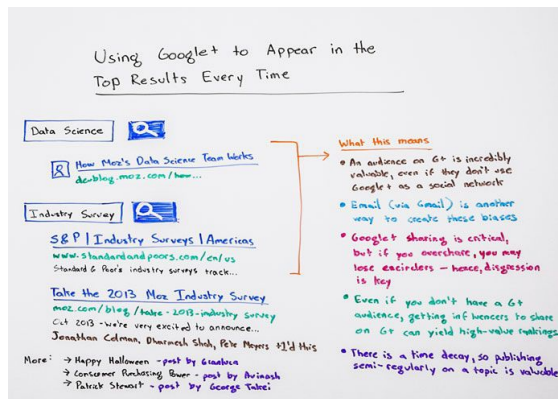 Using Google+ to Appear in the
Top Results Every Time
Data Science
How Moz's Data Science Team Works
devblog.moz.com/how...
Industry Survey
S&P | Industry Surveys | Americas
www.standardandpoors.com/en/us
Standard & Poor's industry surveys track...
Take the 2013 Moz Industry Survey
moz.com/blog/take-2013-industry
Oct 2013 - We're very excited to announce...
Jonathan Colman, Dharmesh Shah, Pete Meyers +1'd this
More: → Happy Halloween - post by Gianluca
→ Consumer Purchasing Power - post by Avinash
→ Patrick Stewart - post by George Takei
What this means
• An audience on G+ is incredibly
valuable, even if they don't use
Google+ as a social network
• Email (via Gmail) is another
way to create these biases
• Google+ sharing is critical,
but if you overshare, you may
lose encirclers - hence, disgression
is key
• Even if you don't have a G+
audience, getting influencers to share
on G+ can yield high-value rankings
• There is a time decay, so publishing
semi-regularly on a topic is valuable